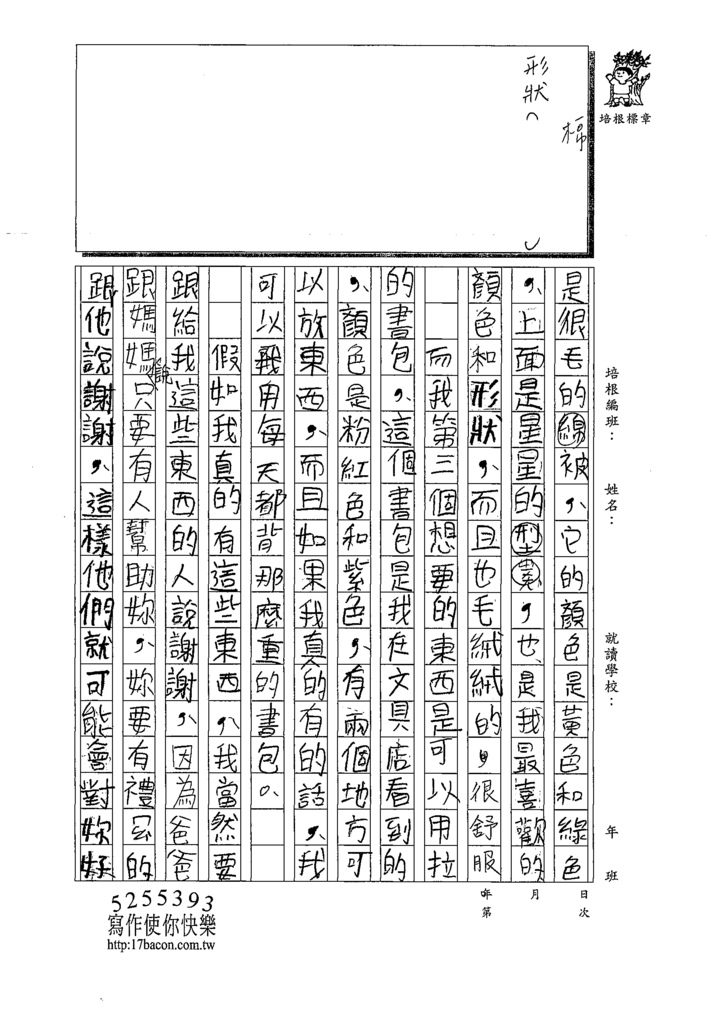 形狀(
)
棉
培根標章
培根編班：
姓名：
就讀學校：
年
班
是很毛的綿被，它的顏色是黃色和綠色
，上面是星星的型
，也是我最喜歡的
顏色和形狀，而且也毛絨絨的，很舒服
而我第三個想要的東西是可以用拉
的書包，這個書包是我在文具店看到的
，顏色是粉紅色和紫色，有兩個地方可
以放東西，而且如果我真的有的話，我
可以我用每天都背那麼重的書包。
假如我真的有這些東西，我當然要
跟給我這些東西的人說謝謝，因為爸爸
跟媽媽說只要有人幫助妳，妳要有禮的
跟他說謝謝，這樣他們就可能會對妳好
年
月
日
第
次
5255393
寫作使你快樂
http:17bacon.com.tw